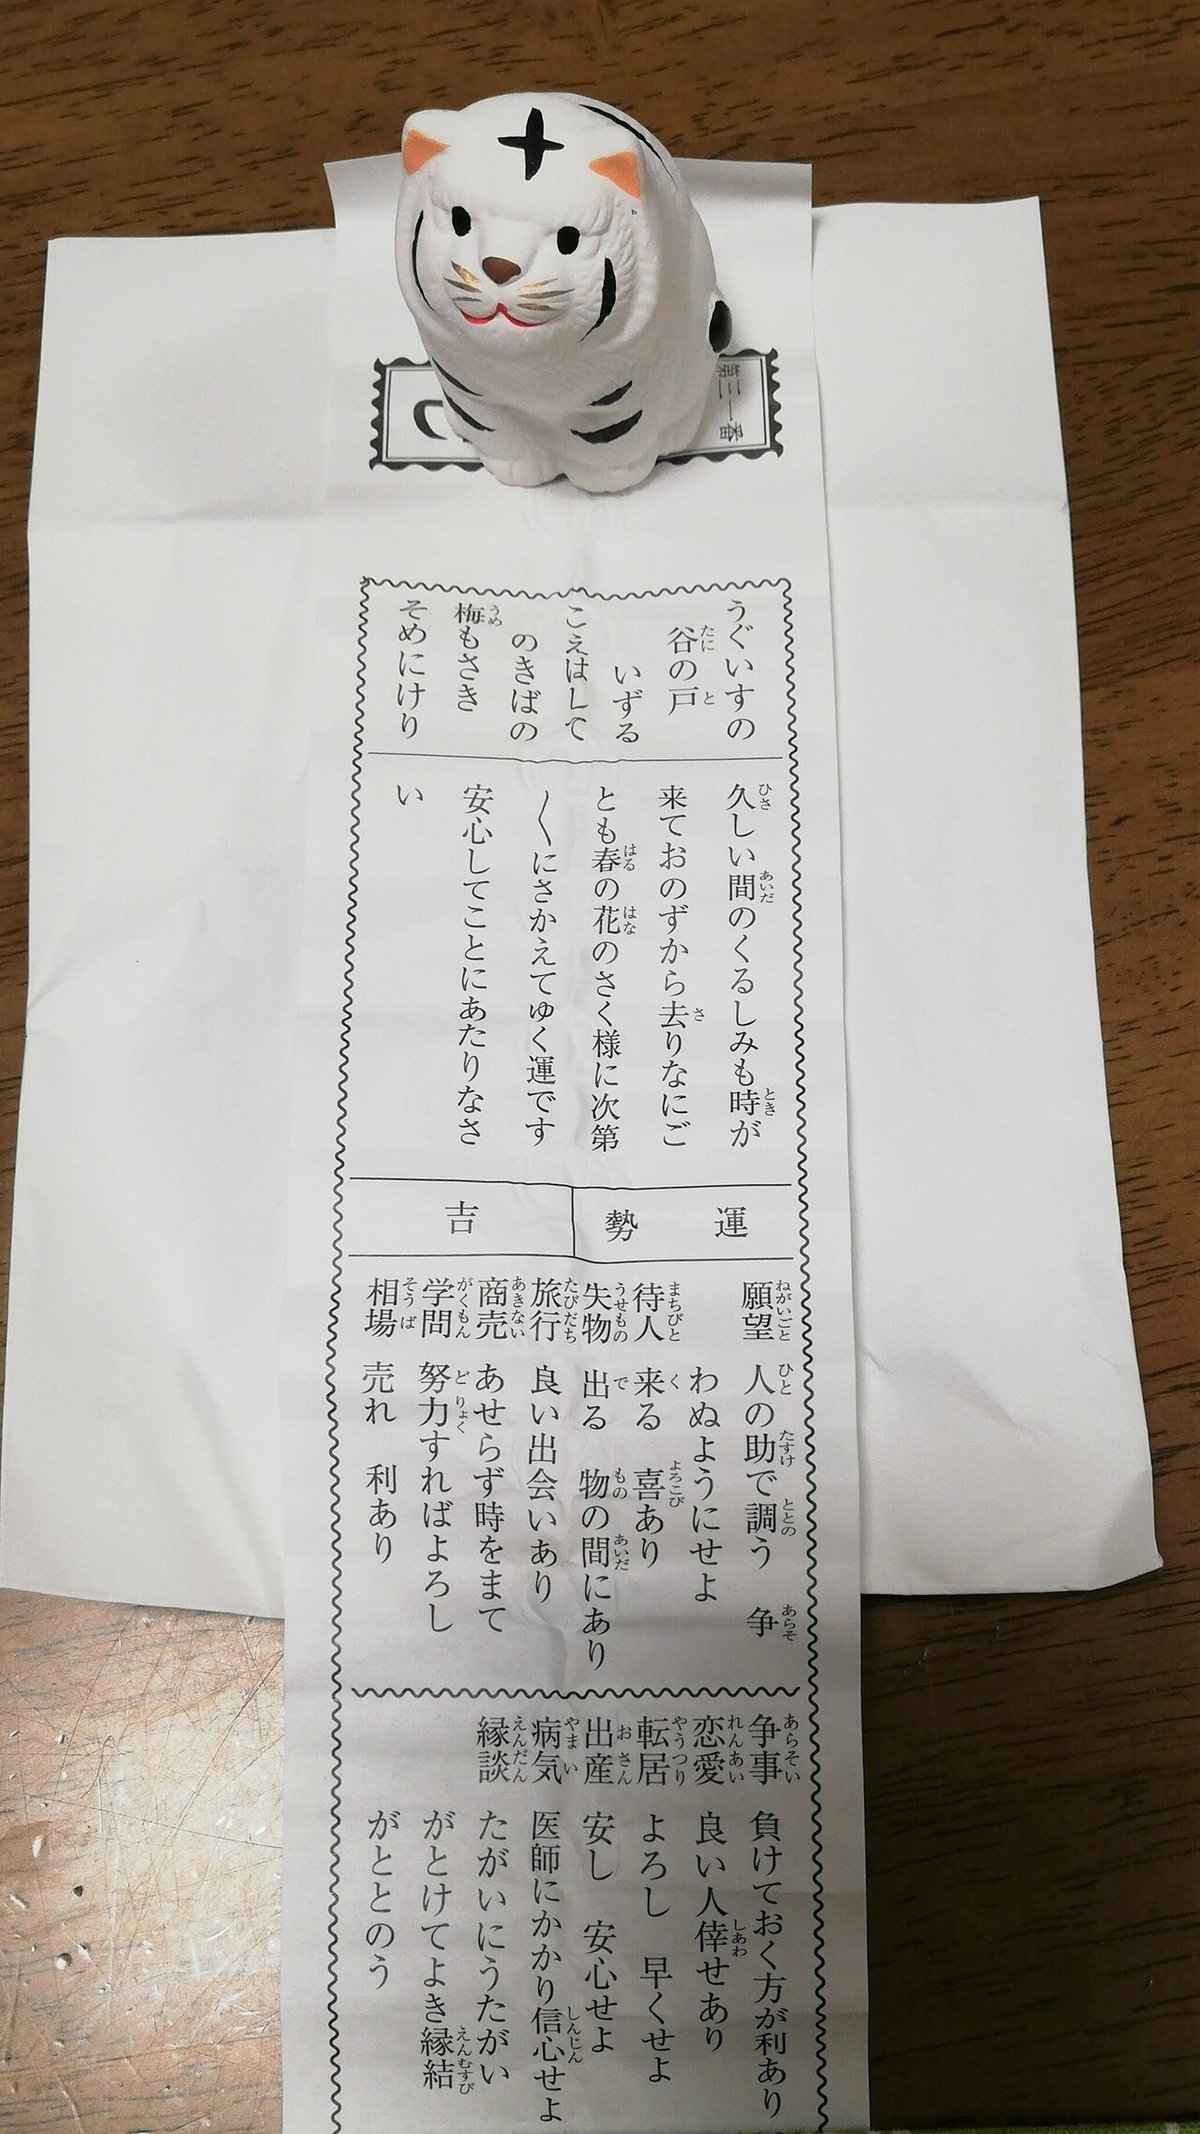 第三一番
うぐいすの
谷の戸
いずる
こえはして
のきばの
梅もさき
そめにけり
久しい間のくるしみも時が
来ておのずから去りなにご
とも春の花のさく様に次第
〱にさかえてゆく運です
安心してことにあたりなさ
い
運勢
吉
願望 人の助で調う 争
わぬようにせよ
待人 来る 喜あり
失物 出る 物の間にあり
旅行 良い出会いあり
商売 あせらず時をまて
学問 努力すればよろし
相場 売れ 利あり
争事 負けておく方が利あり
恋愛 良い人倖せあり
転居 よろし 早くせよ
出産 安し 安心せよ
病気 医師にかかり信心せよ
縁談 たがいにうたがい
がとけてよき縁結
がととのう